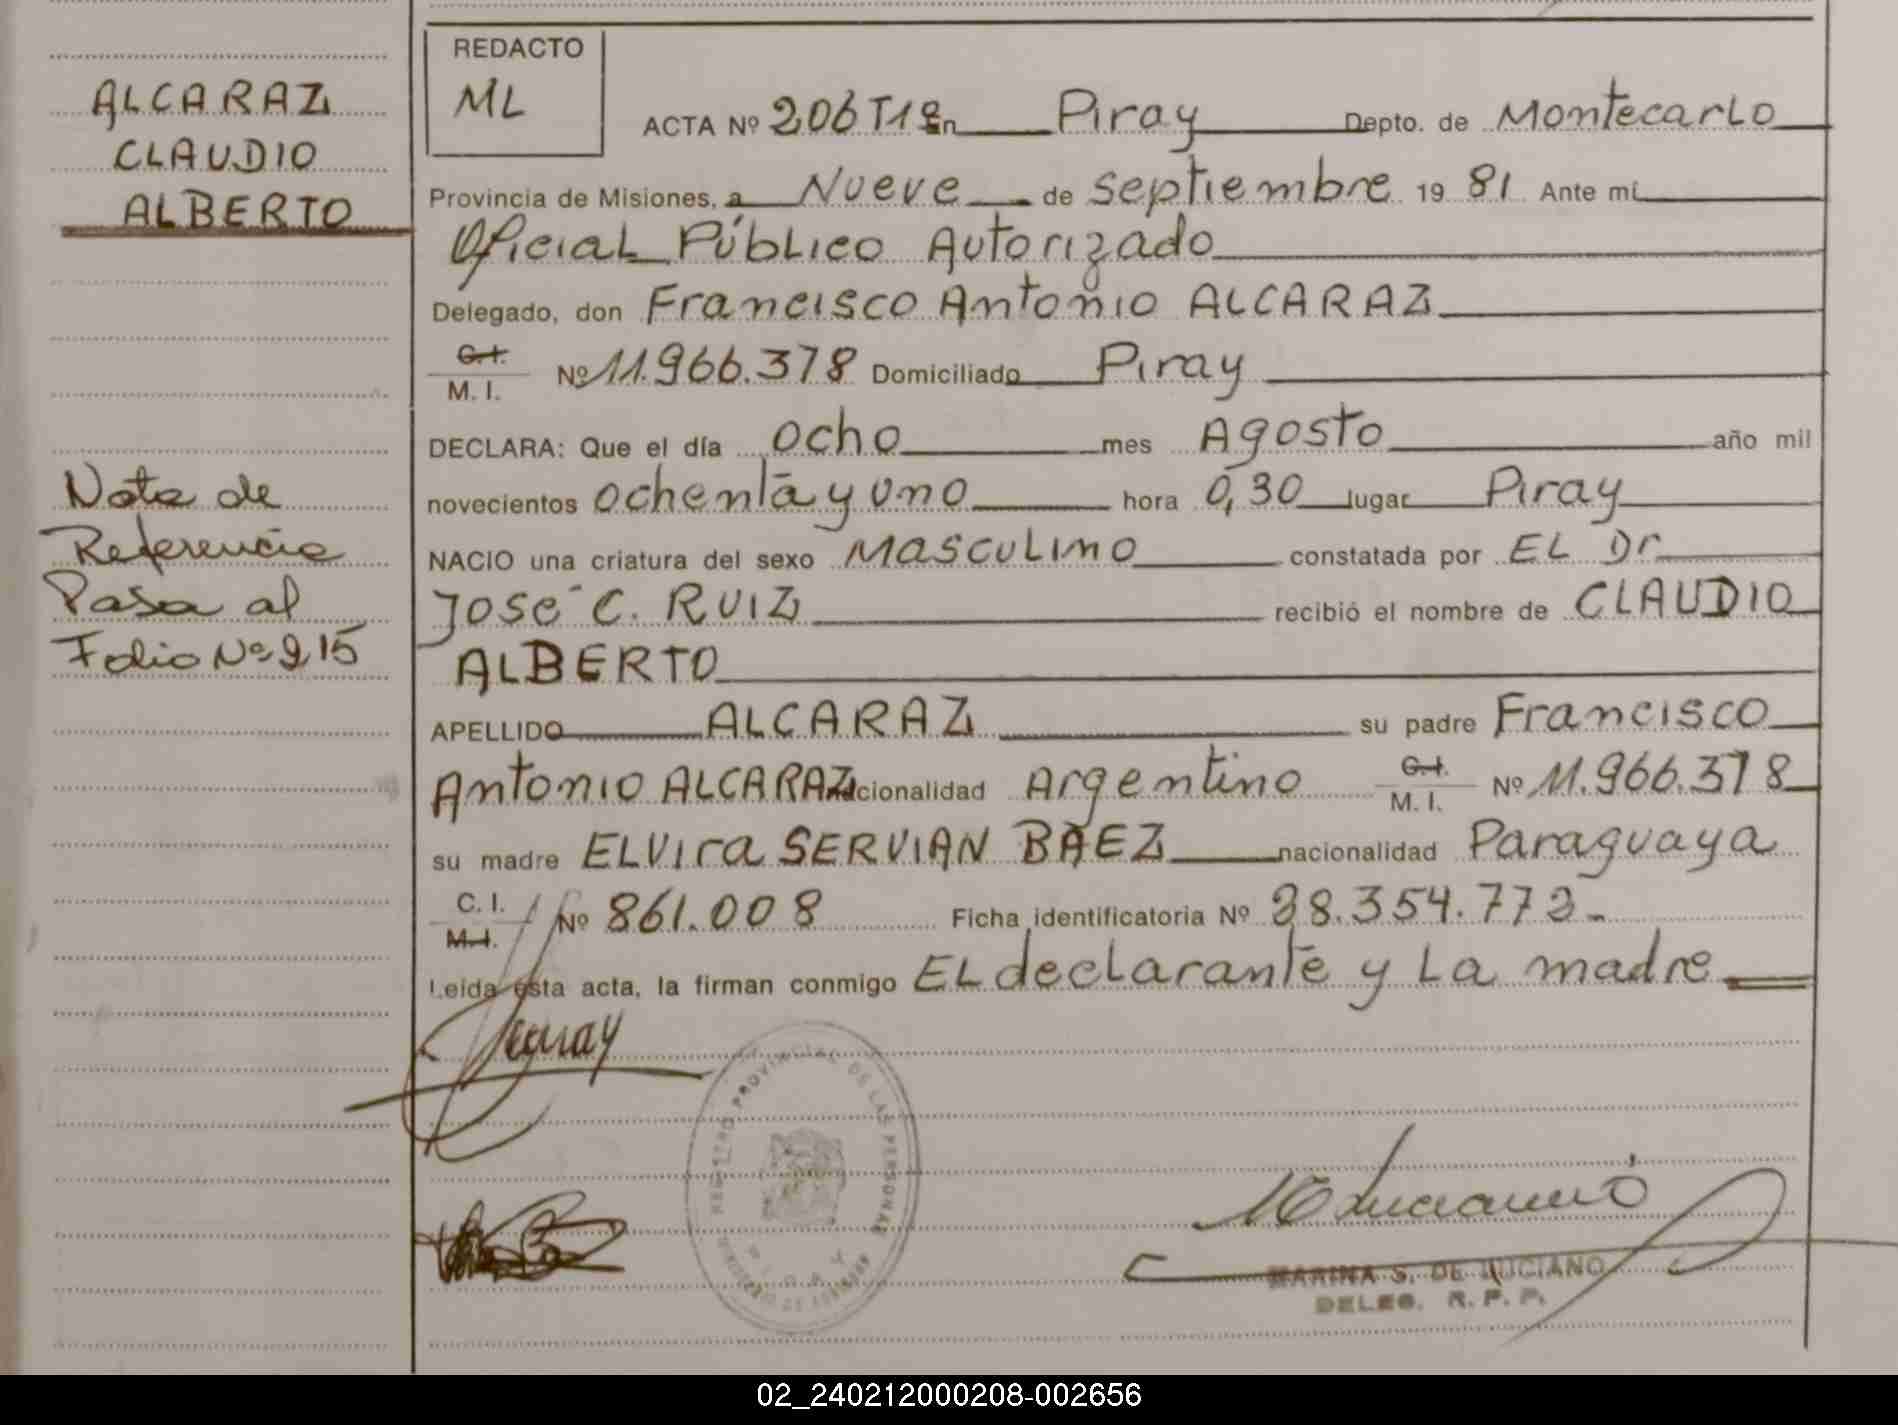 ALCARAZ
CLAUDIO
ALBERTO
Nota de
Referencia
Pasa al
Folio Nº 215
REDACTO
ML
ACTA Nº 206 T1º En Piray Depto. de Montecarlo
Provincia de Misiones, a Nueve de septiembre 19 81 Ante mí
Oficial Público Autorizado
Delegado, don Francisco Antonio ALCARAZ
C.I.
M. I. Nº 11.966.378 Domiciliado Piray
DECLARA: Que el día ocho mes Agosto año mil
novecientos ochenta y uno hora 0,30 lugar Piray
NACIO una criatura del sexo Masculino constatada por EL Dr
José C. RUIZ recibió el nombre de CLAUDIO
ALBERTO
APELLIDO ALCARAZ su padre Francisco
Antonio ALCARAZ nacionalidad Argentino C.I. M. I. Nº 11.966.378
su madre ELVIRA SERVIAN BAEZ nacionalidad Paraguaya
C. I.
M.I. Nº 861.008 Ficha identificatoria Nº 28.354.772.
Leida esta acta, la firman conmigo EL declarante y La madre
REGISTRO PROVINCIAL DE LAS PERSONAS
PIRAY
MARINA S. DE LUCIANO
DELEG. R. P. P.
02_240212000208-002656